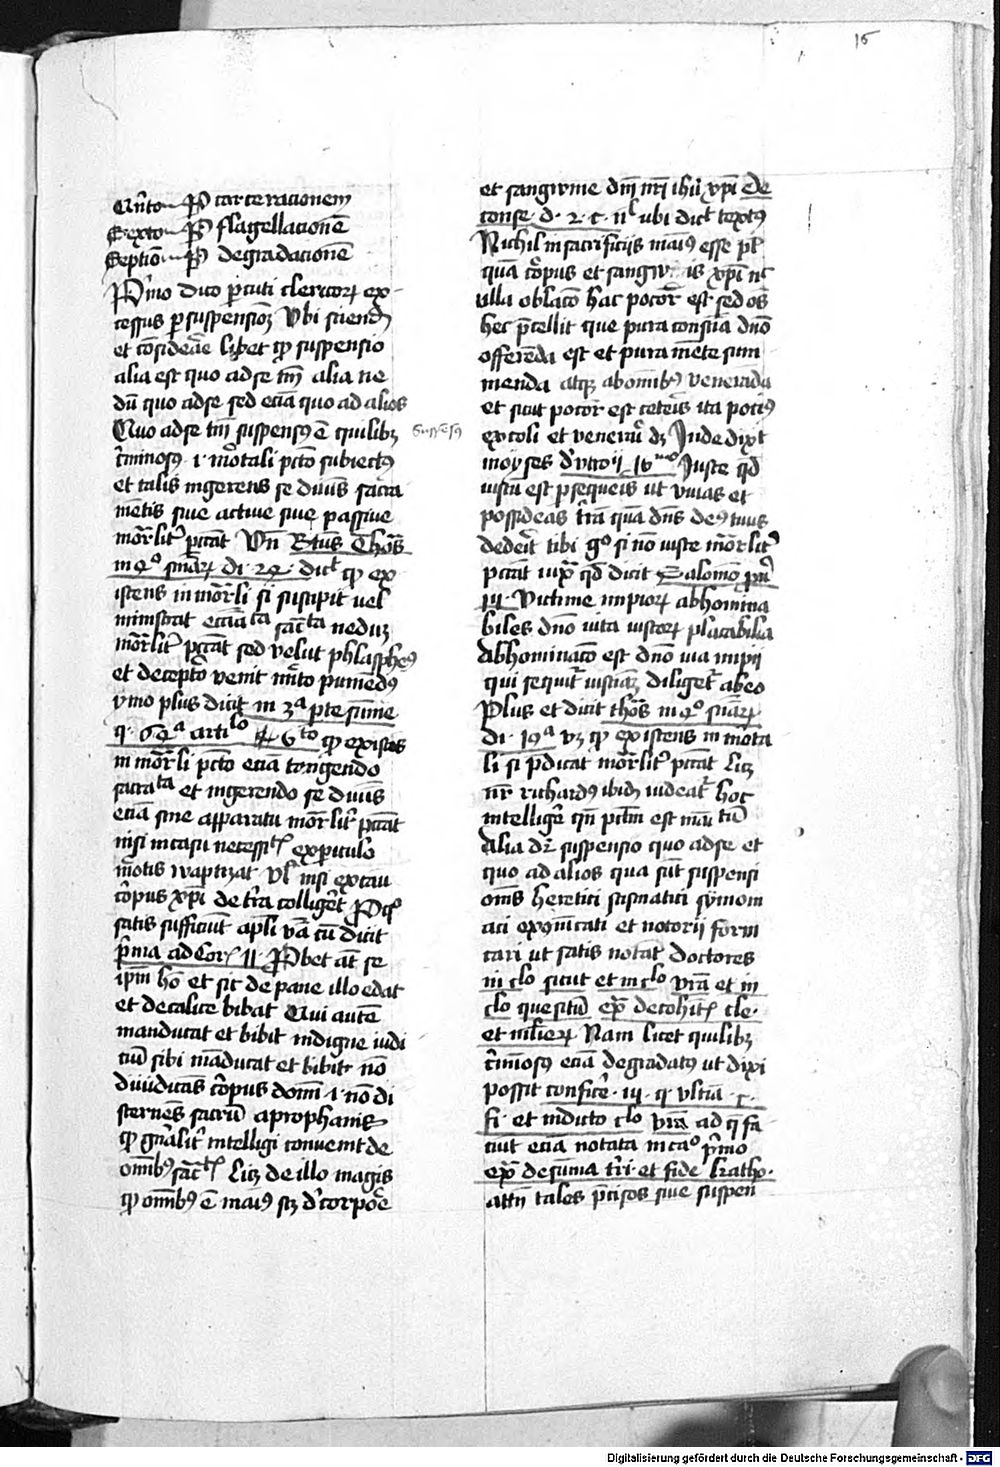 15
Q̄nto Per carceracionem
Sexto Per flagellacionē
Septīo Per degradacionē
P̄mo dico ꝑcuti clericoꝝ ex
cessus ꝑ suspensioꝫ Vbi sciend
et cōsiderāe libet ꝙ suspensio
alia est quo ad se tm̄ alia ne
dū quo ad se sed eciā quo ad alios
Quo ad se tm̄ suspensꝰ ē quilibꝫ
suspēsꝰ
c̄minosꝰ ·i· mͦtali pctō subiectꝰ
et talis ingerens se diuīs sacra
mētis siue actiue siue passiue
mōrlitꝰ peccāt Vn̄ Btus Thōs
in 4º snīaꝝ di· 24 · dicͭ ꝙ ex
istens in mōrli si suscipit uel
ministrat eciā sacͭᵃ neduꝫ
mōrlitꝰ pccāt sed velut phlasphēꝰ
et deceptor venit mͥto puniēdꝰ
ymo plus dicit in 3ª pte sūme
q· 64ª articͦlo 6ͭᵒ ꝙ existēs
in mōrli pctō eciā tangendo
sacraͭᵃ et ingerendo se diuīs
eciā sine apparatu mōrlitꝰ pccāt
nisi in casu necessitͭ ex ꝑiculo
mͦtis vaptizat Vl nisi ex cāu
cͦpus xp̄i de tr̄ra colligēt
satis sufficiūt apl̄i vͣā cū dicit
p̄ma ad Cor· 11 · Probet āt se
ip̄m hō et sic de pane illo edat
et de calice bibat Qui autē
manducat et bibit indigne iudi
ciū sibi māducat et bibit· nō
diiudicās cͦpus domī ·i· nō di
scernēs sacrū a prophanis
ꝙ gn̄alitꝰ intelligi conuenit de
omībꝰ sacͭ Licꝫ de illo magis
ꝙ omībꝰ ē maiꝰ scꝫ de corpoꝛē
et sangwine dn̄i nr̄i ih̄u xp̄i de
conse· d· 2· c· nͥl ubi dicͭ textꝰ
Nichil in sacrificijs maiꝰ esse pͭ
quā cͦpus et sangwis xp̄i nc̄
ulla oblacō hac pocior est sed oēs
hec p̄cellit que pura consciā dn̄o
offerēda est et pura mēte sum
menda atqꝫ ab omībꝰ venerāda
et sicut pocior est ceteris ita pociꝰ
excoli et venerari dꝫ Inde dixͭ
moyses dētro ij 16ͫᵒ Iuste qd̄
iustū est ꝑsequeris ut viuas et
possideas tr̄rā quā dn̄s deꝰ tuus
dederit tibi gͦ si nō iuste mōrlitꝰ
pccāt iuxͣ qd̄ dicit Salomō
Victime impioꝝ abhomina
biles dn̄o uita iustoꝝ placabilia
Abhominacō est dn̄o uia impij
qui sequiͭ iusticiaꝫ diligeͭ ab eo
Plus et dicit thōs in 4º snīaꝝ
di· 19ª vꝫ ꝙ existens in mͦta
li si p̄dicat mōrlitꝰ pccāt Licꝫ
nr̄ richardꝰ ibidē uideatͬ hoc
intelligē qn̄ pctm̄ est mālī tm̄
Alia dr̄ suspensio quo ad se et
quo ad alios qua sūt suspensi
oms heretici scismatici symoni
aci exͦnicati et notorij forni
carij ut satis notāt doctores
in cͦlo sicut et in cͦlo vͣā et in
cͦlo quesitū exͣ de cohītͭ cle·
et mulieꝝ Nam licet quilibꝫ
c̄minosꝰ eciā degradatꝰ ut dixi
possit conficē· iij· q· vltīa · c·
fi· et inducto cͦlo vͣā ad q̄ fa
ciūt eciā notata in caͦ pͥmo
exͣ de sūma tr̄i· et fide kathͦ·
attn̄ tales p̄cisos siue suspen
Digitalisierung gefördert durch die Deutsche Forschungsgemeinschaft - DFG